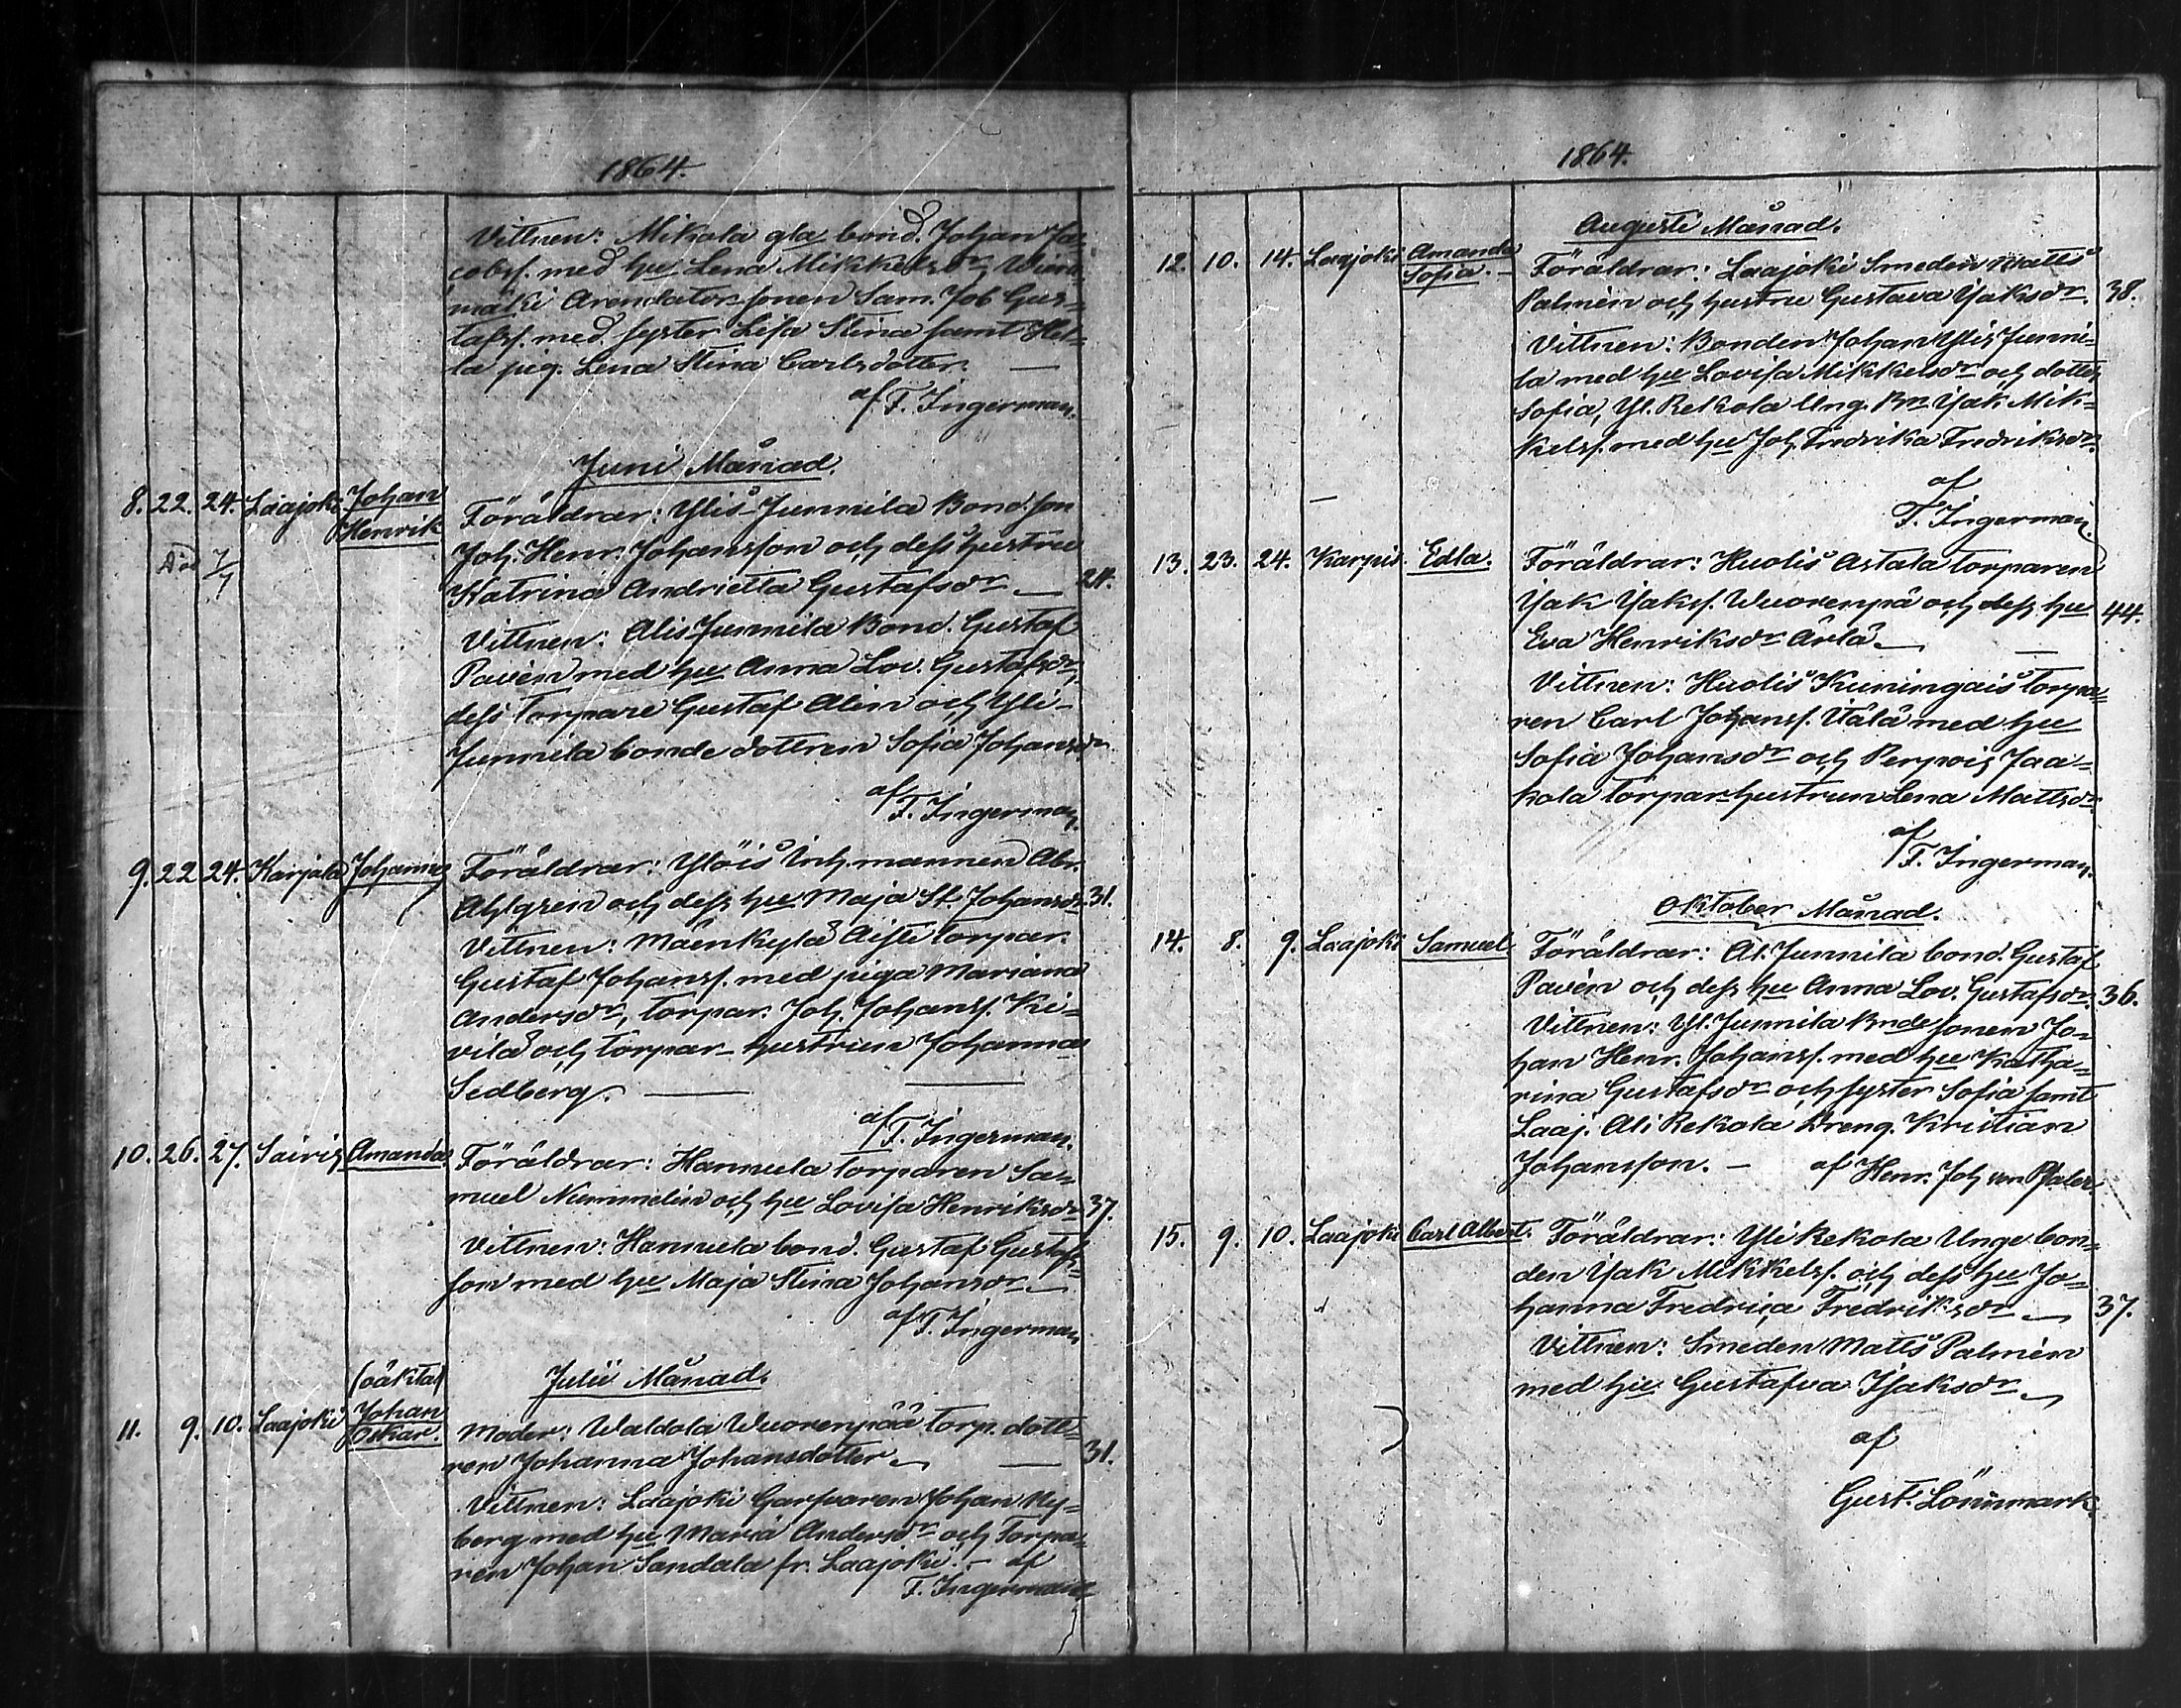 1864.
Vittnen: Mikola gla bond. Johan Ja-
cobss. med hu Lena Mikkelsdr,
mäki Arendators sonen Sam. Job Gus-
tafss. med syster Lisa Stina samt Hei-
la pig. Lena Stina Carlsdotter. —
af F. Ingerman.
Juni Månad.
8. 22. 24. Laajoki Johan Föräldrar: Ylis Junnila Bond. son
Henrik Joh. Henr. Johansson och dess hustru
Död 7/7 Katrina Andrietta Gustafsdr — 24.
Vittnen: Alis Junnila Bond. Gustaf
Pavén med hu Anna Lov. Gustafsdr,
dess Torpare Gustaf Alin och Yli-
Junnila bonde dottren Sofia Johansdr
af F. Ingerman.
9. 22 24. Karjala Johanna Föräldrar: Ylöis Inh. mannen Abr.
Ahlgren och dess hu Maja St. Johansdr 31.
Vittnen: Mäenkylä Aisti torpar.
Gustaf Johanss. med piga Mariana
Andersdr, torpar. Joh. Johanss. Ki-
vilä och torpar-hustrun Johanna
Sedberg. —
af F. Ingerman.
10. 26. 27. Sairis Amanda. Föräldrar: Hannula torparen Sa-
muel Nummelin och hu Lovisa Henriksdr 37.
Vittnen: Hannula bond. Gustaf Gustafs-
son med hu Maja Stina Johansdr —
af F. Ingerman
(oäkta) Julii Månad.
11. 9. 10. Laajoki Johan Moder: Waldola Wuorenpää torp. dott-
Oskar. ren Johanna Johansdotter — 31.
Vittnen: Laajoki Garfvaren Johan Ny-
berg med hu Maria Andersdr och Torpa-
ren Johan Sandala fr. Laajoki. — af
F. Ingerman
1864.
Augusti Månad.
12. 10. 14. Laajoki Amanda Föräldrar: Laajoki Smeden Matts
Sofia. — Palmén och hustru Gustava Isaksdr. 38.
Vittnen: Bonden Johan Ylis Junni-
la med hu Lovisa Mikkelsdr och dotter
Sofia, Yl. Rekola Ung. Bn Isak Mik-
kelss. med hu Joh. Fredrika Fredriksdr.
af
F. Ingerman.
13. 23. 24. Karpis. Edla. Föräldrar: Huolis Astala torparen
Isak Isakss. Wuorenpä och dess hu 44.
Eva Henriksdr Ärlä —
Vittnen: Huolis Kuningais torpa-
ren Carl Johanss. Itälä med hu
Sofia Johansdr och Jaa-
kola torpar hustrun Lena Mattsdr
af F. Ingerman.
Oktober Månad.
14. 8. 9. Laajoki Samuel Föräldrar: Al. Junnila bond. Gustaf
Pavén och dess hu Anna Lov. Gustafsdr. 36.
Vittnen: Yl. Junnila Bnde sonen Jo-
han Henr. Johanss. med hu Katha-
rina Gustafsdr och syster Sofia samt
Laaj. Ali Rekola Dreng. Kristian
Johansson. — af Henr. Joh von Pfaler.
15. 9. 10. Laajoki Carl Albert. Föräldrar: Yli Rekola Unge bon-
den Isak Mikkelss. och dess hu Jo-
hanna Fredrica Fredriksdr — 37.
Vittnen: Smeden Matts Palmén
med hu Gustafva Isaksdr —
af
Gust. Lönnmark.